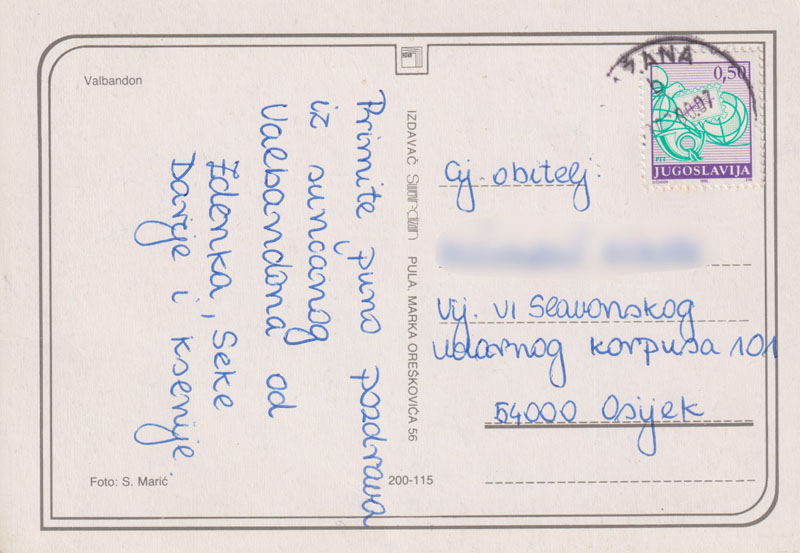 Valbandon
Primite puno pozdrava
iz sunčanog
Valbandona od
Zdenka, Seke
Darije i Ksenije
Foto: S. Marić
200-115
IZDAVAČ
PULA, MARKA OREŠKOVIĆA 56
0,50
JUGOSLAVIJA
Cj. obitelj:
Vij. VI Slavonskog
udarnog korpusa 101
54000 Osijek